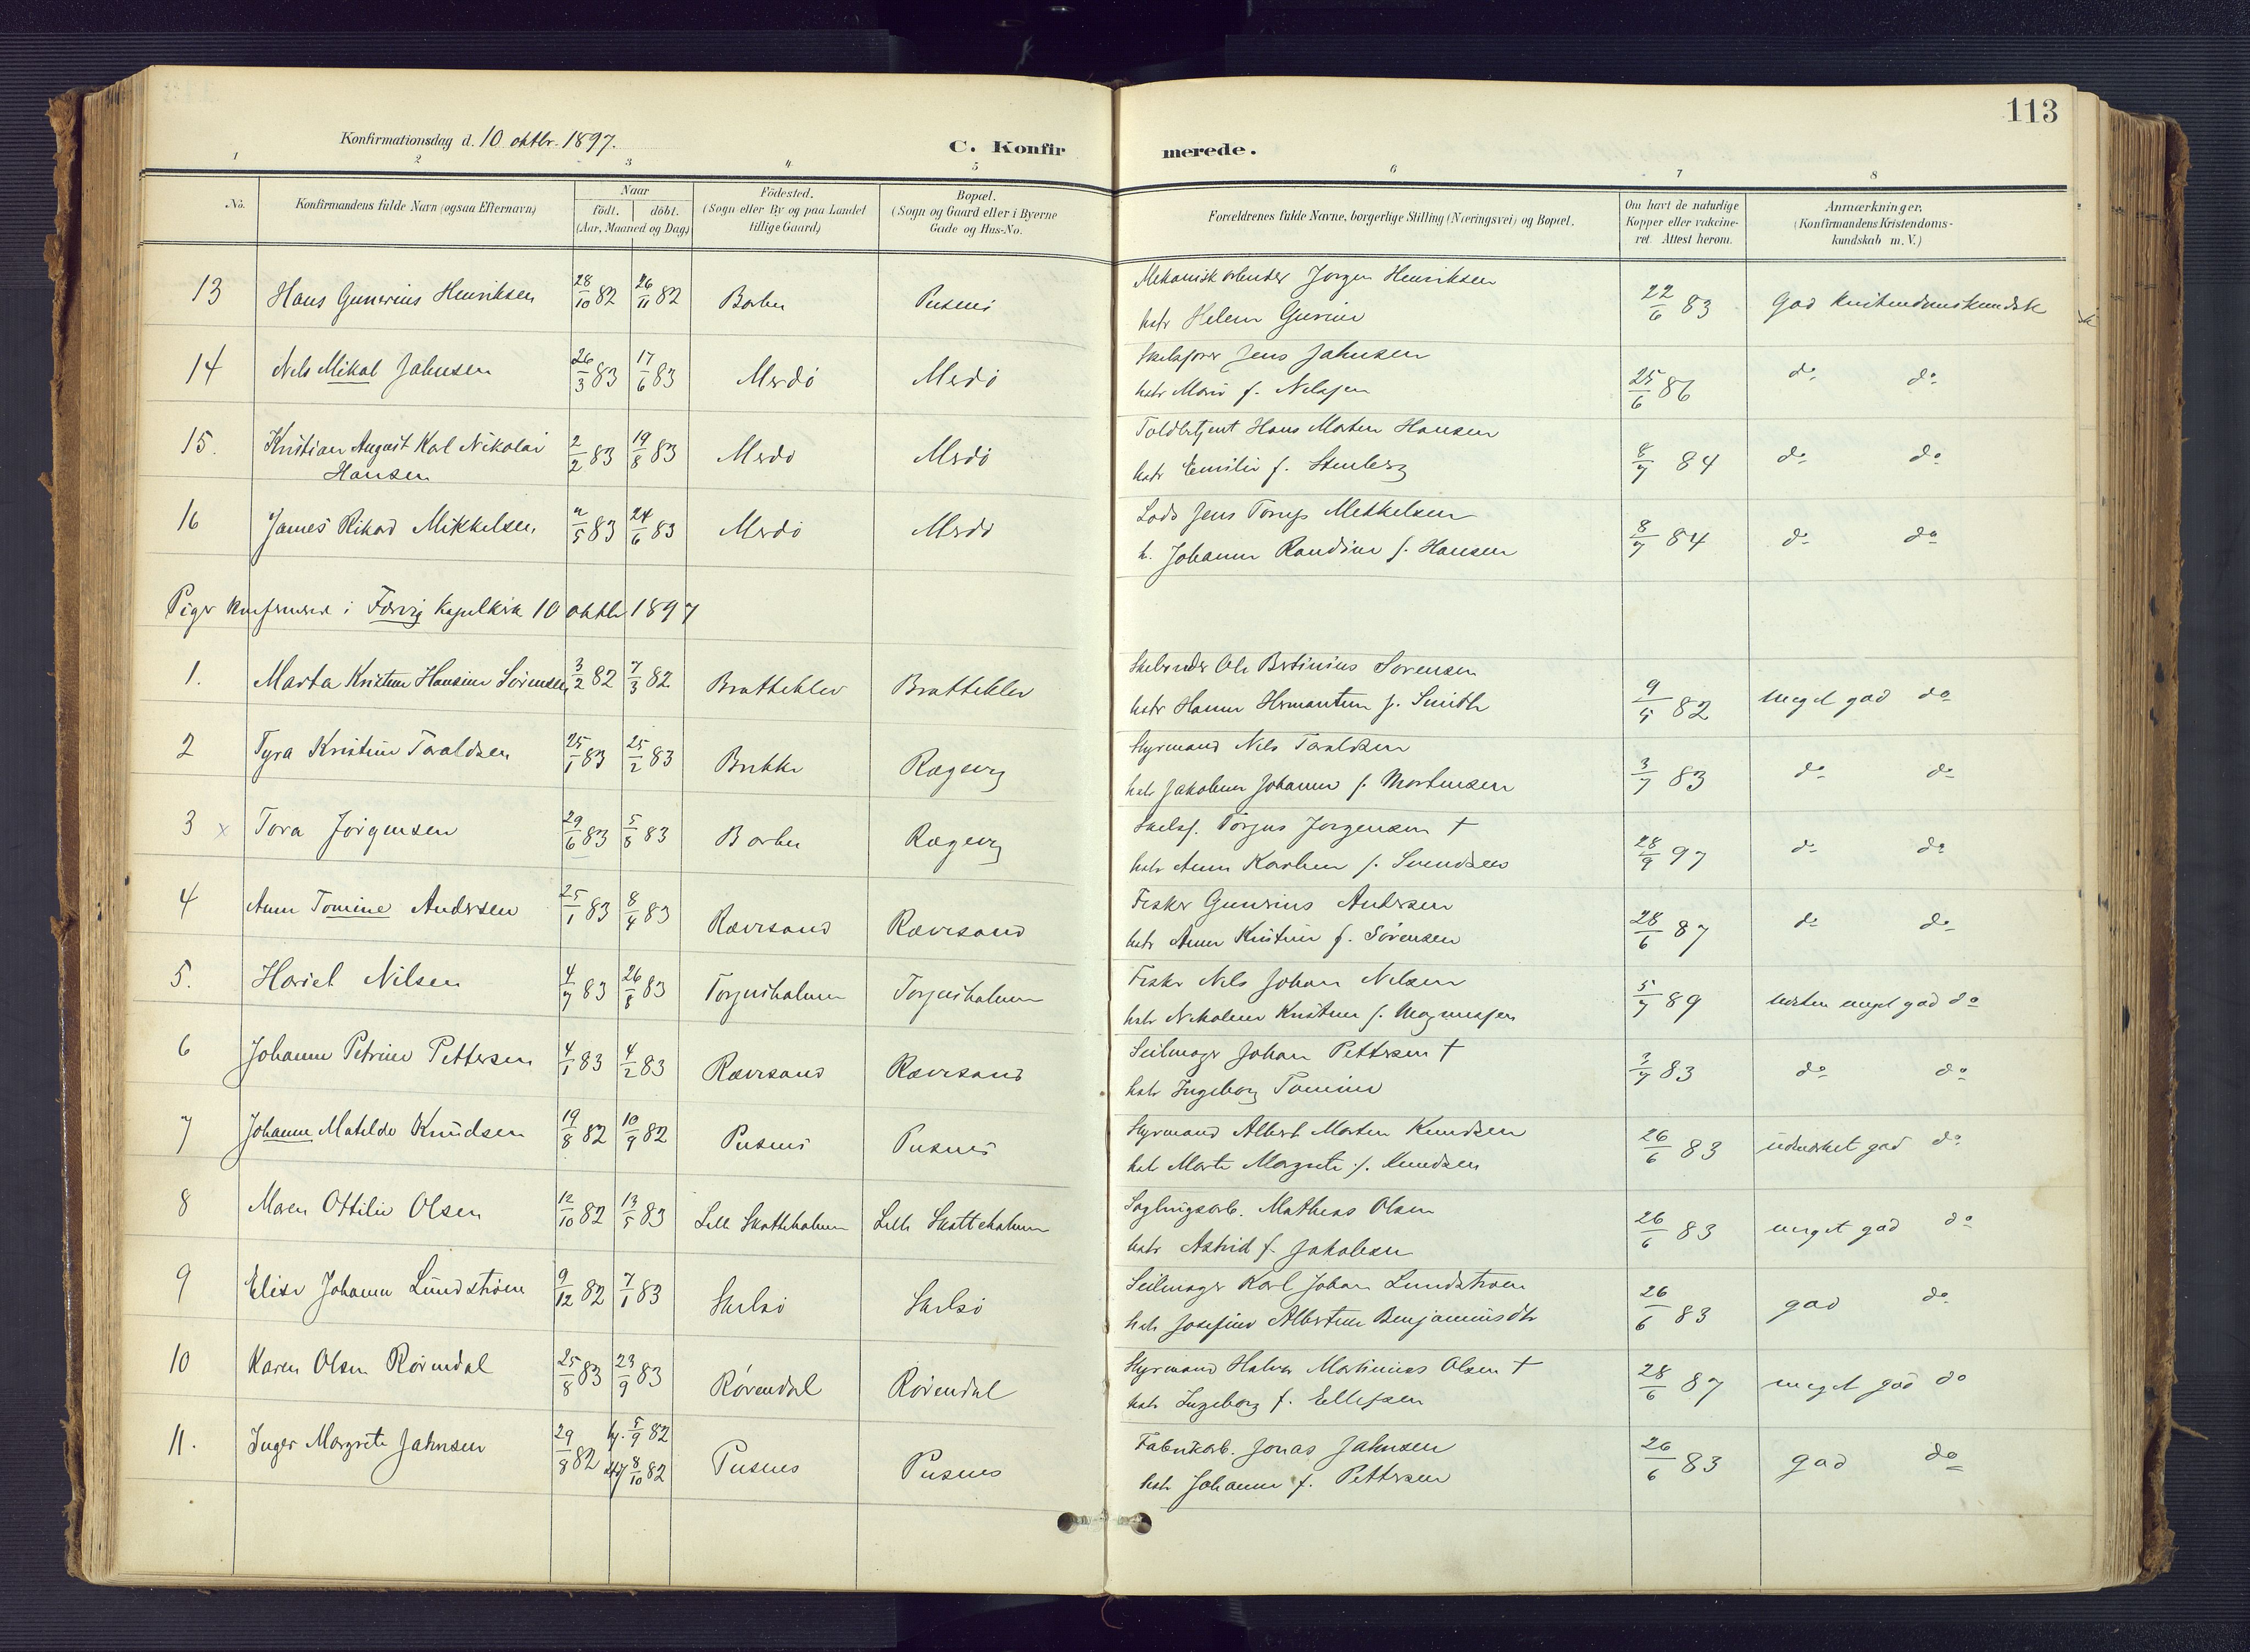 113
Konfirmationsdag d. 10 oktbr. 1897.
C. Konfirmerede.
1 2 3 4 5 6 7 8
No.
Konfirmandens fulde Navn (ogsaa Efternavn)
Naar
födt. döbt.
(Aar, Maaned og Dag)
Födested.
(Sogn eller By og paa Landet
tillige Gaard)
Bopæl.
(Sogn og Gaard eller i Byerne
Gade og Hus-No.
Forældrenes fulde Navne, borgerlige Stilling (Næringsvei) og Bopæl.
Om havt de naturlige
Kopper eller vakcine-
ret. Attest herom.
Anmærkninger,
(Konfirmandens Kristendoms-
kundskab m. V.)
13 Hans Gunerius Henriksen 28/10 82 26/11 82 Barbu Pusnes Mekanisk arbeider Jørgen Henriksen 22/6 83 God kristendomskundsk
hstr Helene Gurine
14 Nils Mikal Jahnsen 26/3 83 17/6 83 Merdö Merdö Jens Jahnsen 25/6 86 do do
hstr Marie f. Nilssen
15. Kristian August Karl Nikolai 2/2 83 19/8 83 Merdö Merdö Toldbetjent Hans Morten Hansen 8/7 84 do do
Hansen hstr Emilie f. Stenberg
16 James Rikard Mikkelsen 2/5 83 24/6 83 Merdö Merdö Lods Jens Torup Mikkelsen 8/7 84 do do
h. Johanne Randine f. Hansen
Piger konfirmered i Færvig kapelkirke 10 oktbr 1897
1. Marta Kristine Hansine Sörensen 3/2 82 7/3 82 Bratteklev Bratteklev Skibsreder Ole Bertinius Sörensen 9/5 82 meget god do
hstr Hanne Hermantine f. Smith
2 Tyra Kristine Taraldsen 25/1 83 25/2 83 Brekke Rægevig Styrmand Nils Taraldsen 3/7 83 do do
hstr Jakobine Johanne f. Mortensen
3 x Tora Jörgensen 29/6 83 5/8 83 Barbu Rægevig Skibsf. Torjus Jörgensen † 28/9 97 do do
hstr Anne Karoline f. Svendsen
4 Anne Tomine Andersen 25/1 83 8/4 83 Rævesand Rævesand Fisker Gunerius Andersen 28/6 87 do do
hstr Anne Kristine f. Sörensen
5. Hariet Nilsen 4/7 83 26/8 83 Torjusholmen Torjusholmen Fisker Nils Johan Nilsen 5/7 89 næsten meget god do
hstr Nikoline Kristine f. Magnussen
6 Johanne Petrine Pettersen 4/1 83 4/2 83 Rævesand Rævesand Seilmager Johan Pettersen † 3/7 83 do do
hstr Ingeborg Tomine
7 Johanne Matilde Knudsen 19/8 82 10/9 82 Pusnes Pusnes Styrmand Albert Morten Knudsen 26/6 83 udmærket god do
hstr Marte Margrete f. Knudsen
8 Maren Ottilie Olsen 12/10 82 13/5 83 Lille Skotteholmen Lille Skotteholmen Mathias Olsen 26/6 83 meget god do
hstr Astrid f. Jakobsen
9 Elise Johanne Lundström 9/12 82 7/1 83 Skilsö Skilsö Seilmager Karl Johan Lundström 26/6 83 god do
hstr Josefine Albertine Benjaminsdtr
10 Karen Olsen Rövendal 25/8 83 23/9 83 Rövendal Rövendal Styrmand Halvor Martinius Olsen † 28/6 87 meget god do
hstr Ingeborg f. Ellefsen
11. Inger Margrete Jahnsen 29/8 82 hj. 5/9 82 Pusnes Pusnes Fabrikarb. Jonas Jahnsen 26/6 83 god do
8/10 82 hstr Johanne f. Pettersen